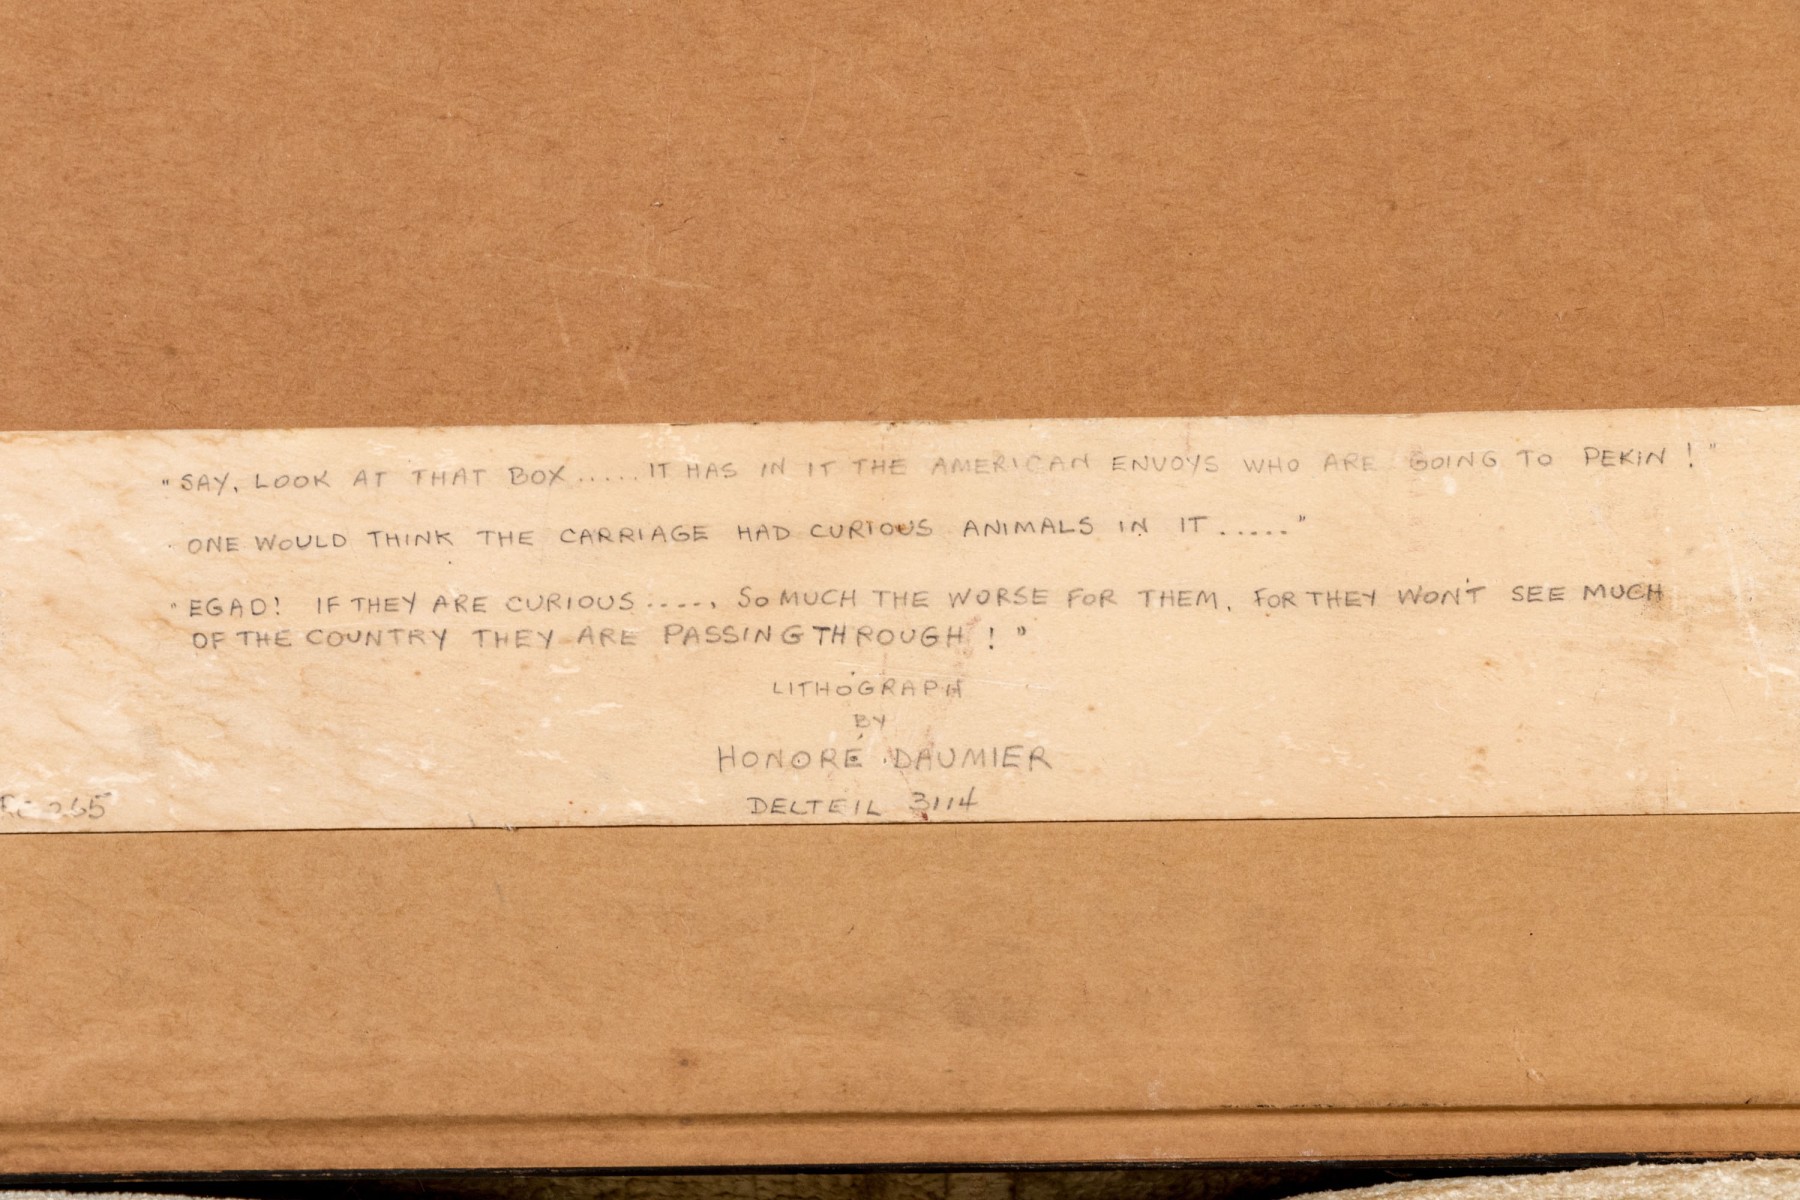 "SAY, LOOK AT THAT BOX.....IT HAS IN IT THE AMERICAN ENVOYS WHO ARE GOING TO PEKIN!"
ONE WOULD THINK THE CARRIAGE HAD CURIOUS ANIMALS IN IT....."
"EGAD! IF THEY ARE CURIOUS....., SO MUCH THE WORSE FOR THEM, FOR THEY WON'T SEE MUCH
OF THE COUNTRY THEY ARE PASSING THROUGH!"
LITHOGRAPH
BY
HONORÉ DAUMIER
DELTEIL 3114
265